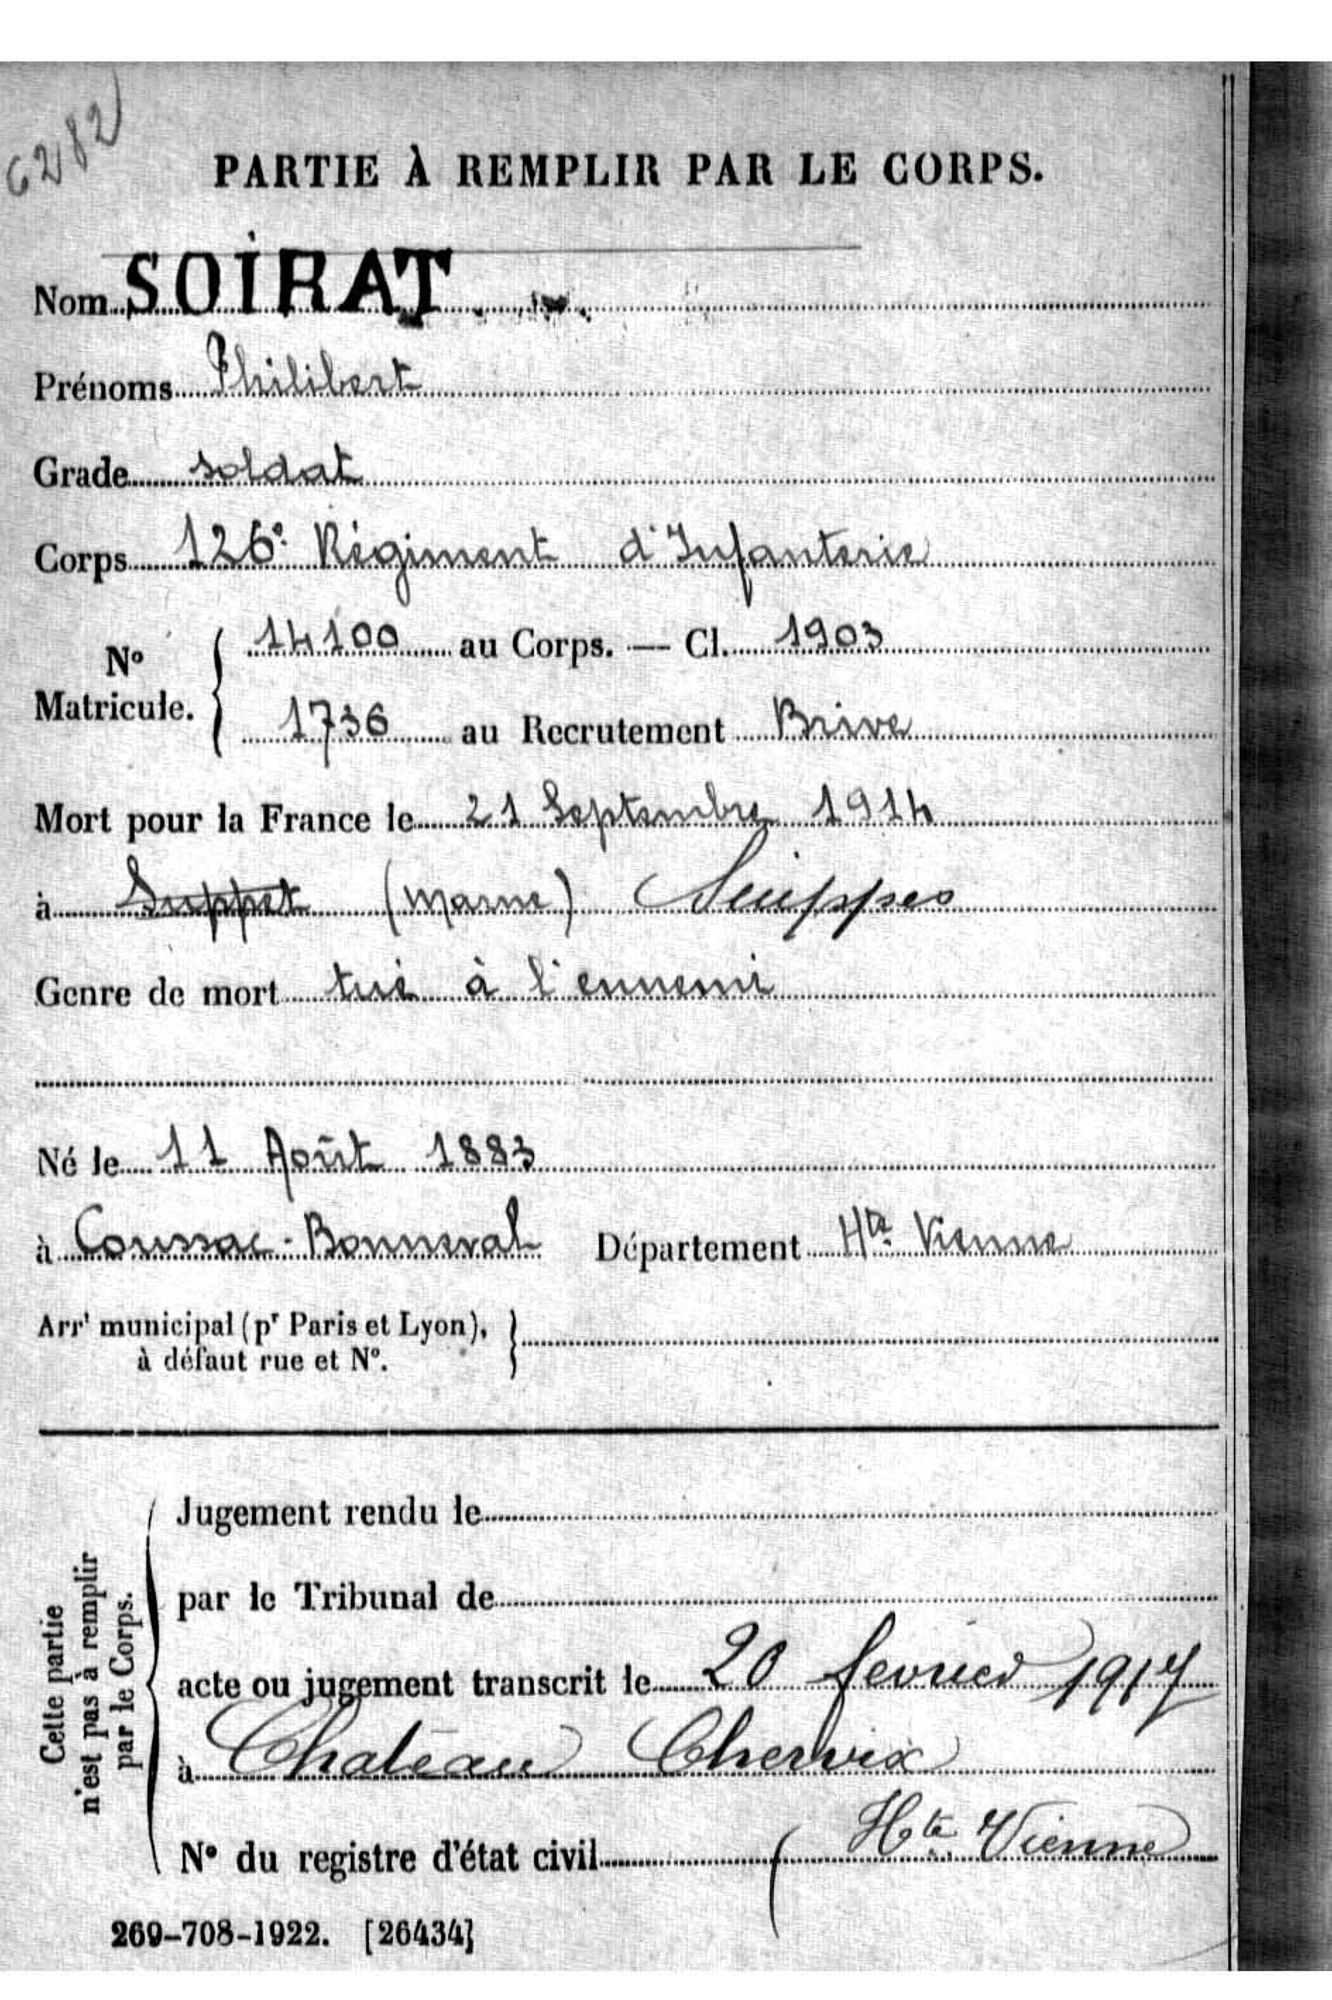 6282
PARTIE À REMPLIR PAR LE CORPS.
Nom SOIRAT
Prénoms Philibert
Grade soldat
Corps 126e Régiment d'Infanterie
No 14100 au Corps. — Cl. 1903
Matricule. 1736 au Recrutement Brive
Mort pour la France le 21 Septembre 1914
à Suppet (Marne) Suippes
Genre de mort tué à l'ennemi
Né le 11 Août 1883
à Coussac-Bonneval Département Hte Vienne
Arrt municipal (pr Paris et Lyon),
à défaut rue et No.
Cette partie
n'est pas à remplir
par le Corps.
Jugement rendu le
par le Tribunal de
acte ou jugement transcrit le 20 fevrier 1917
à Chateau Chervix
No du registre d'état civil (Hte Vienne
269-708-1922. [26434]